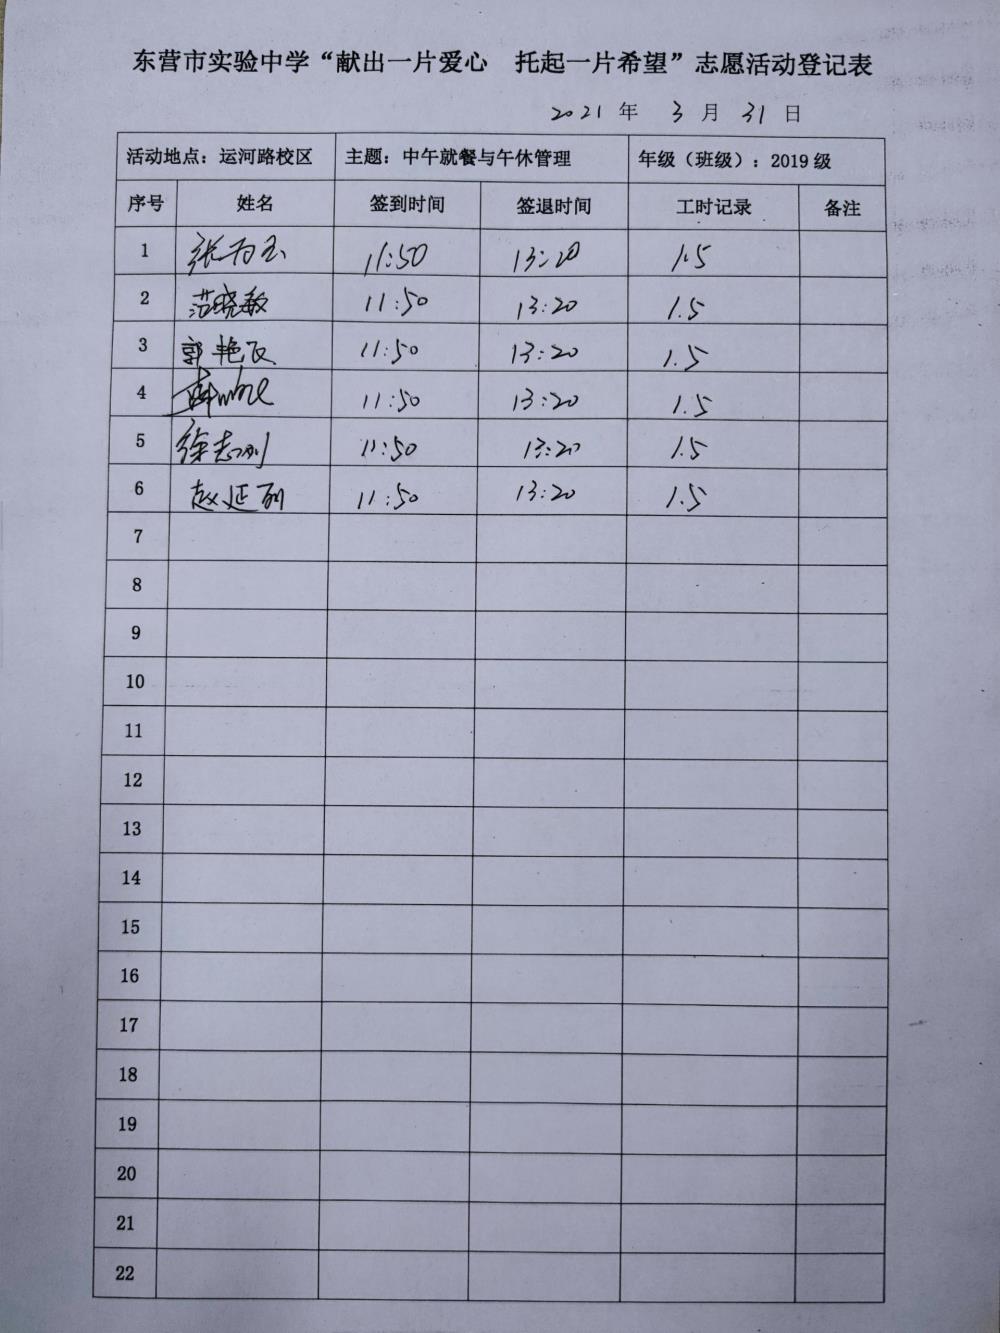 东营市实验中学“献出一片爱心 托起一片希望”志愿活动登记表
2021 年 3 月 31 日
活动地点：运河路校区 主题：中午就餐与午休管理 年级（班级）：2019 级
序号 姓名 签到时间 签退时间 工时记录 备注
1 11:50 13:20 1.5
2 范晓敏 11:50 13:20 1.5
3 郭艳飞 11:50 13:20 1.5
4 11:50 13:20 1.5
5 徐志刚 11:50 13:20 1.5
6 赵延利 11:50 13:20 1.5
7
8
9
10
11
12
13
14
15
16
17
18
19
20
21
22